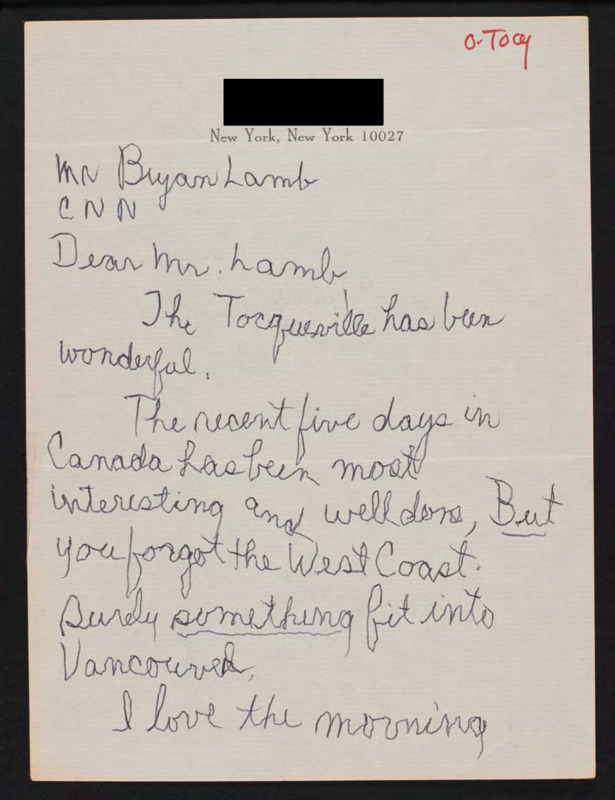 O-Tocq
New York, New York 10027
Mr Bryan Lamb
CNN
Dear Mr. Lamb,
The Tocqueville has been
wonderful.
The recent five days in
Canada has been most
interesting and well done, But
you forgot the West Coast.
Surely something fit into
Vancouver.
I love the morning